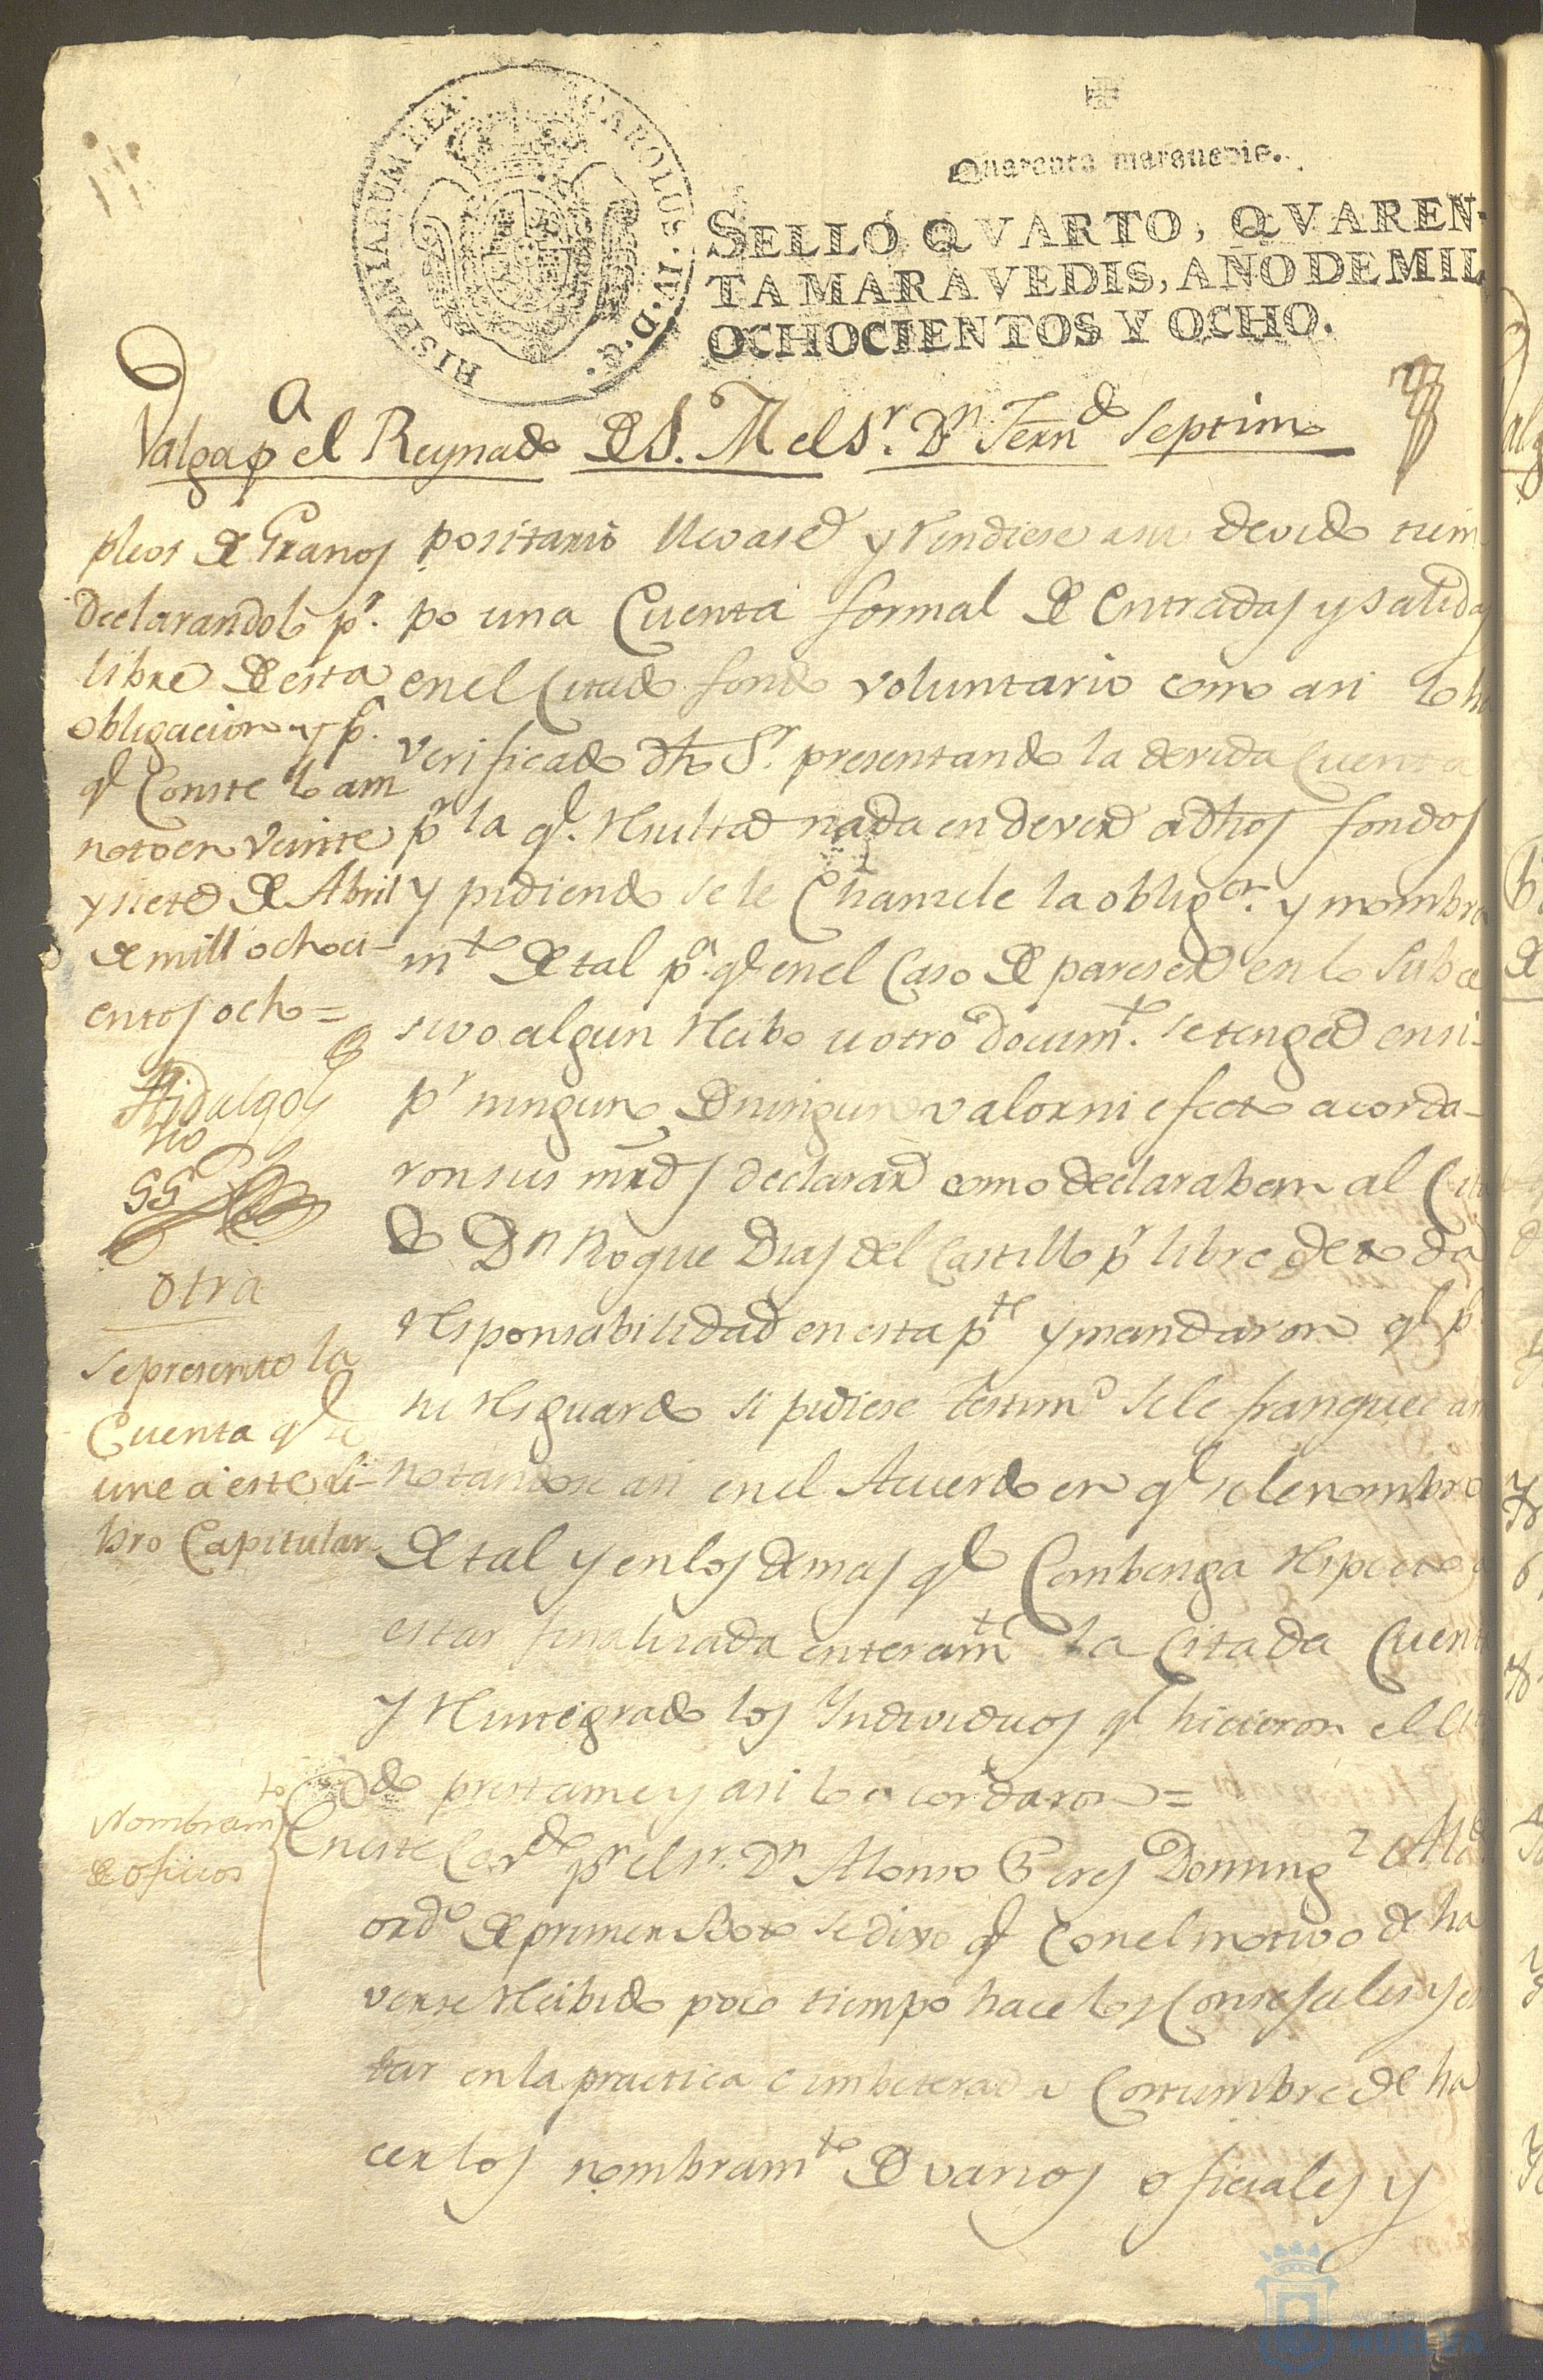 HISPANIARUM REX. CAROLUS. IV. D. G.
Quarenta maravedis.
SELLO QVARTO, QVAREN-
TA MARAVEDIS, AÑO DE MIL
OCHOCIENTOS Y OCHO.
Valga pa el Reynado de S. M. el Sr. Dn Ferndo Septimo
pleos de Granos
declarandolo pr.
libre de esta
obligacion y pa.
qe Conste lo an
noto en veinte
y siete de Abril
de mill ochoci-
entos ocho =
Hidalgo
SSno
otra
se presento la
Cuenta qe se
une a este Li-
bro Capitular
positario llevase y rindiese a su devido tiem
po una Cuenta formal de Entradas y salidas
en el Citado fondo voluntario como asi lo ha
verificado dho Sr. presentando la devida Cuenta
pr la qe. resulta nada en dever a dhos fondos
y pidiendo se le Chancele la obligon. y nombra
mto de tal pa. qe en el Caso de pareser en lo Subce
sivo algun recibo u otro documto. se tenga en si
pr ningun de ningun valor ni efecto acorda-
ron sus mrds declarar como declaraben al Cita
do Dn Roque Dias del Castillo pr libre de toda
responsabilidad en esta pte y mandaron qe pa
su resguardo si pidiese testimo se le franquee an
notandose asi en el Acuerdo en qe se le nombro
de tal y en los demas qe Combenga respecto a
estar finalizada enteramte la Citada Cuenta
y reintegrado los Yndividuos qe hicieron el Cita
do prestame y asi lo acordaron =
Nombramto
de oficios
En este Cavdo pr el Sr. Dn Alonso Peres Domingz Alcde
ordo de primer Boto se dixo qe Con el motivo de ha
verse recibido poco tiempo hace los Consejales y es
tar en la practica e imbeterada Costumbre de ha
cer los nombramto de varios oficiales y
HUELVA